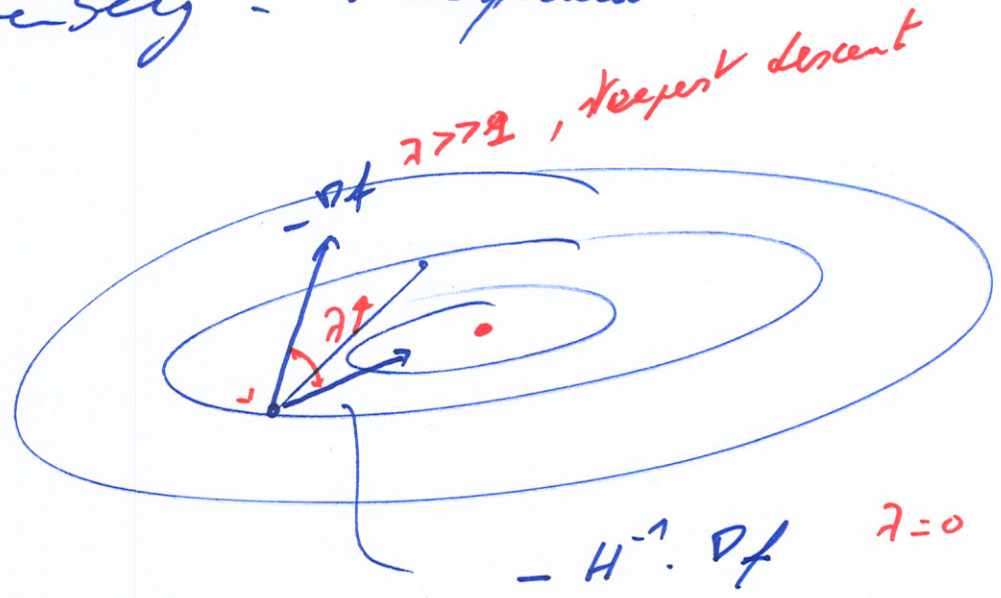 λ>>1, steepest descent
-∇f
λ↑
- H⁻¹. ∇f λ=0